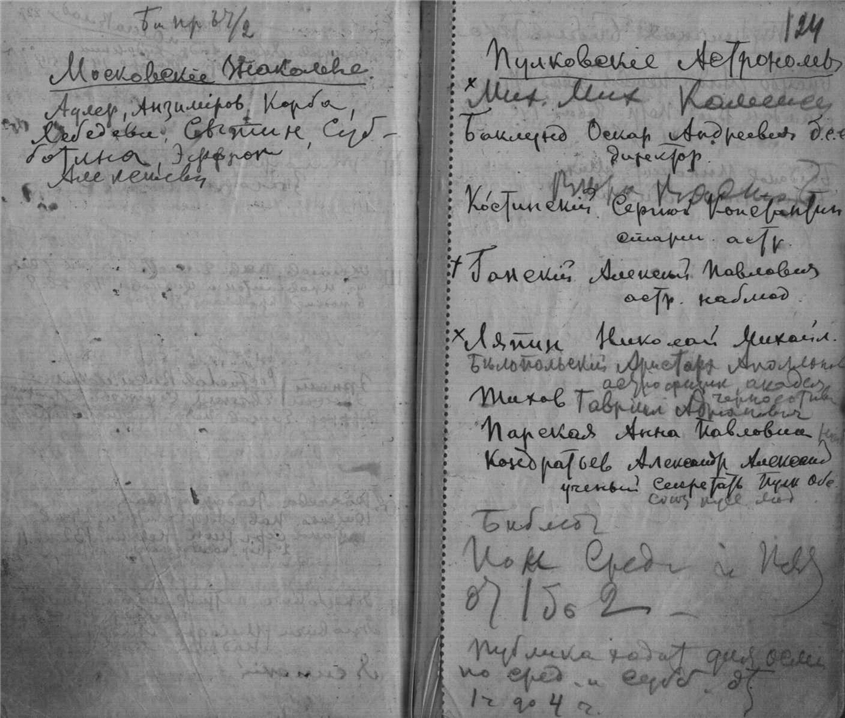 Московскіе Знакомые.
Адлер, Анзиміров, Корба,
Лебедевы, Светин, Суб-
ботина, Эфрон
Алексеевы
124
Пулковскіе Астрономы
× Мих. Мих.
Баклунд Оскар Андреевич
директор.
Костинскій Сергей Константин
старш. астр.
+ Ганскій Алексей Павлович
астр. наблюд.
× Ляпин Николай Михайл.
Белопольскій Аристарх Аполлонов
астрофизик академ
Тихов Гавриил Адріанович
Парская Анна Павловна
Кондратьев Александр Алексеев
ученый секретарь Пулк Обс
Библіот
Пон Среда и Пят
от 1 до 2 –
Публика ходит для осм
по сред. и субб. от
1 ч до 4 ч.